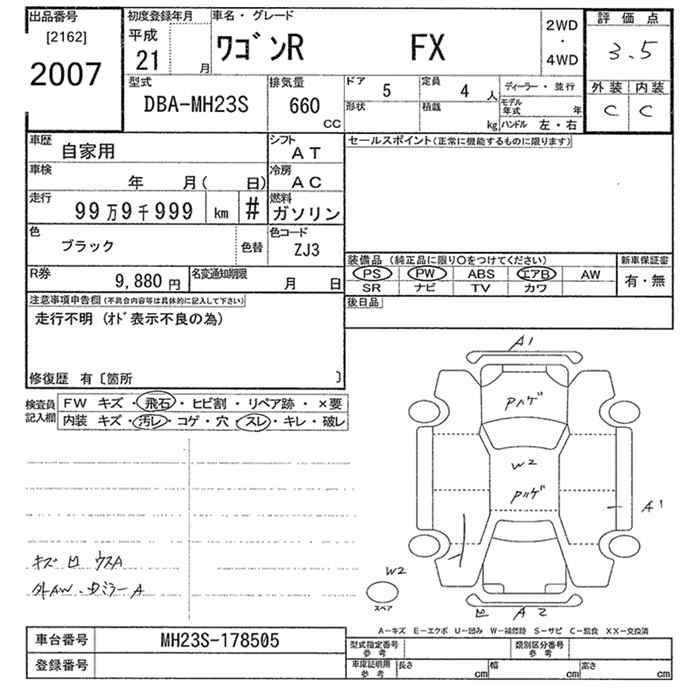 出品番号
[2162]
2007
初度登録年月
平成
21 月
車名・グレード
ワゴンR FX
2WD
・
4WD
評価点
3.5
外装 内装
C C
型式
DBA-MH23S
排気量
660
CC
ドア 5
定員 4 人
形状
積載 kg
ディーラー・並行
モデル年式 年
ハンドル 左・右
車歴 自家用
シフト AT
車検 年 月( 日)
冷房 AC
走行 99万9千999 km #
燃料 ガソリン
色 ブラック 色替
色コード ZJ3
R券 9,880円
名変通知期限 月 日
セールスポイント(正常に機能するものに限ります)
装備品 (純正品に限り○をつけてください)
PS PW ABS エアB AW
SR ナビ TV カワ
新車保証書
有・無
後日品
注意事項申告欄(不具合内容等は具体的に記入して下さい)
走行不明 (オド表示不良の為)
修復歴 有〔箇所 〕
検査員記入欄
FW キズ・飛石・ヒビ割・リペア跡・×要
内装 キズ・汚レ・コゲ・穴・スレ・キレ・破レ
キズ 凹 ウスA
外AW、
ミラーA
A1
Pハゲ
W2
Pハゲ
A1
W2
スペア
凹 A2
A-キズ E-エクボ U-凹み W-補修跡 S-サビ C-腐食 XX-交換済
車台番号 MH23S-178505
登録番号
型式指定番号
参考
類別区分番号
参考
車庫証明用
参考
長さ cm
幅 cm
高さ cm